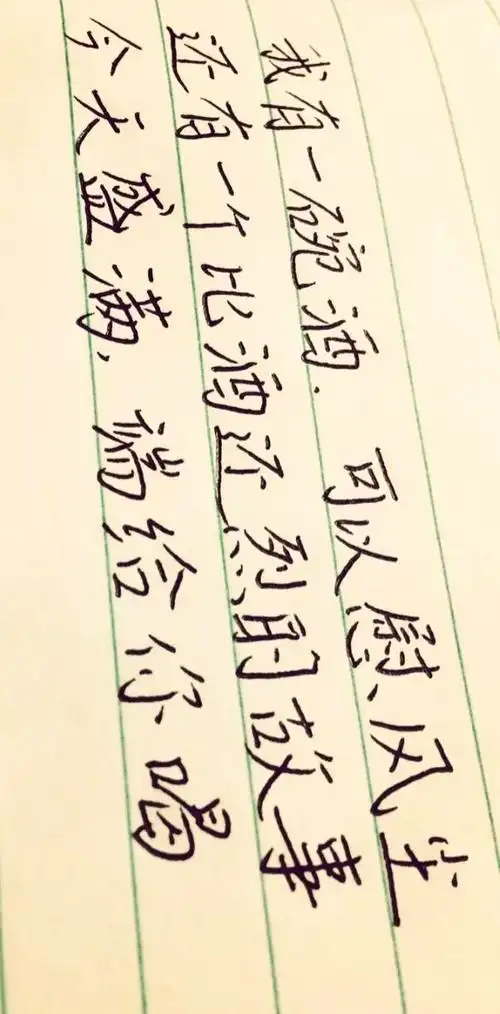 我有一碗酒.可以慰风尘
还有一个比酒还烈的故事
今天盛满.端给你喝